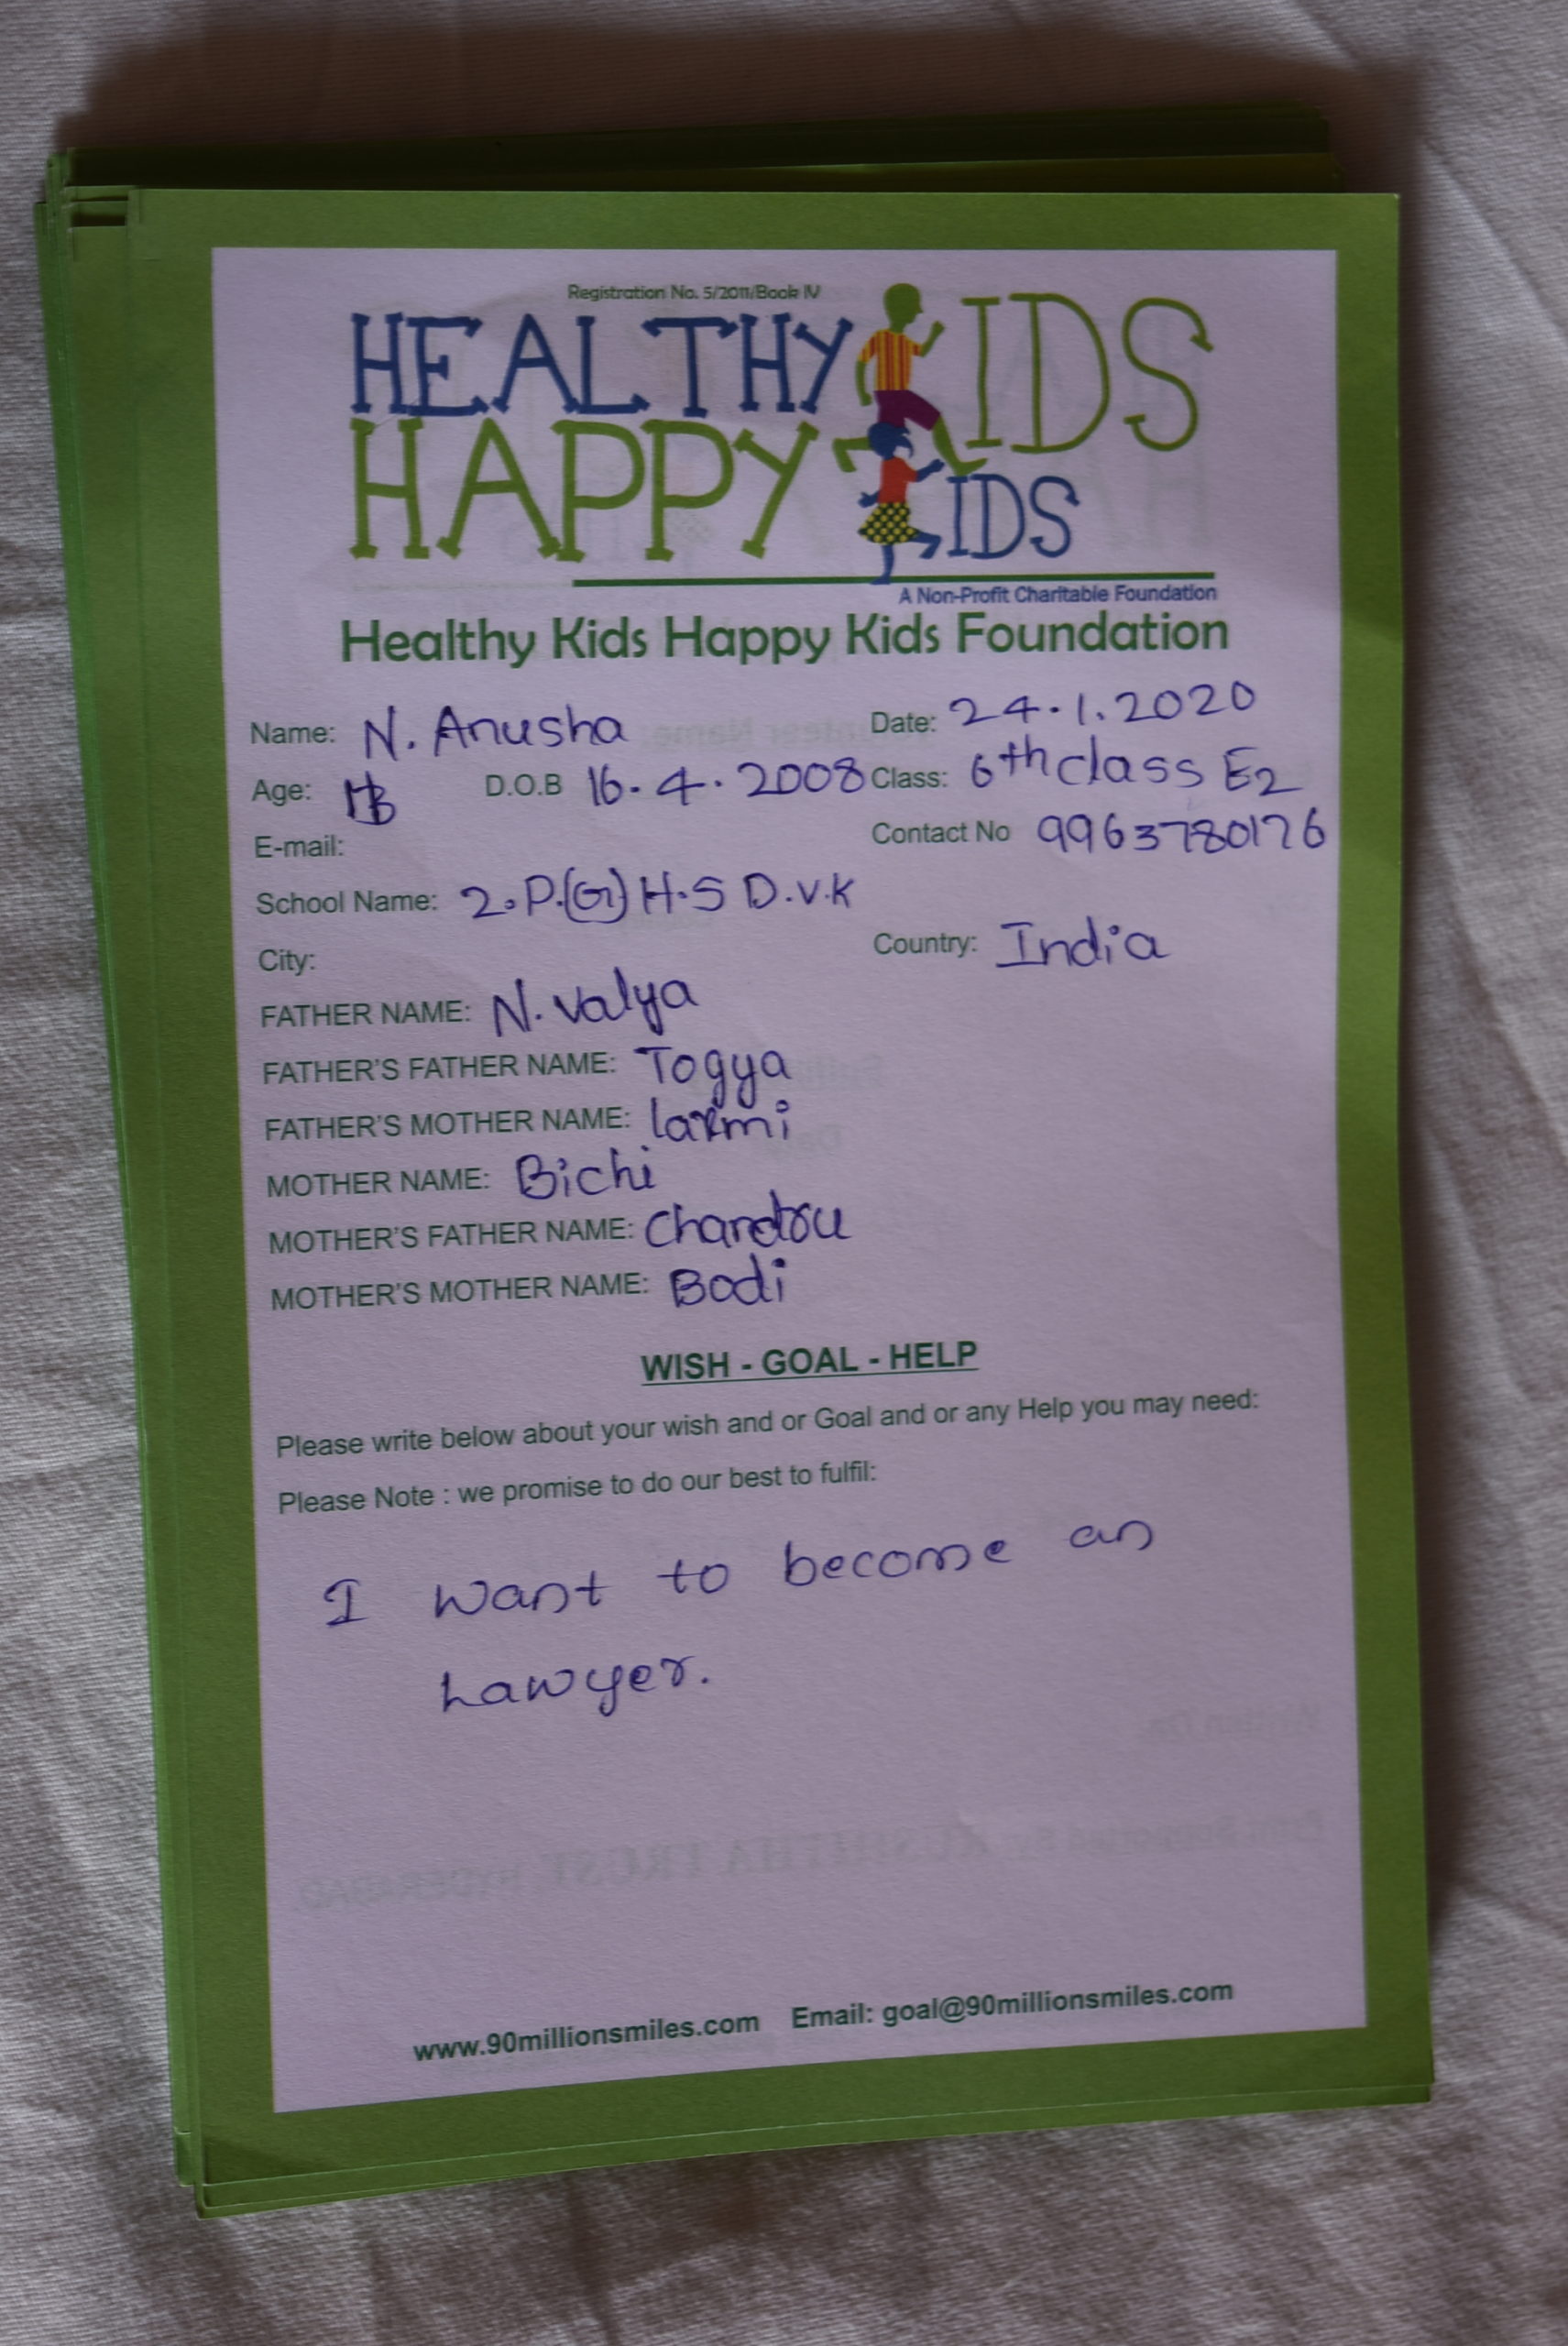 Registration No. 5/2011/Book IV
HEALTHY KIDS
HAPPY KIDS
A Non-Profit Charitable Foundation
Healthy Kids Happy Kids Foundation
Name: N. Anusha Date: 24.1.2020
Age: D.O.B 16.4.2008 Class: 6th class E2
E-mail: Contact No 9963780176
School Name: 2.P.(G) H.S D.V.K
City: Country: India
FATHER NAME: N. Valya
FATHER'S FATHER NAME: Togya
FATHER'S MOTHER NAME: laxmi
MOTHER NAME: Bichi
MOTHER'S FATHER NAME: Chandru
MOTHER'S MOTHER NAME: Bodi
WISH - GOAL - HELP
Please write below about your wish and or Goal and or any Help you may need:
Please Note : we promise to do our best to fulfil:
I want to become an
Lawyer.
www.90millionsmiles.com Email: goal@90millionsmiles.com